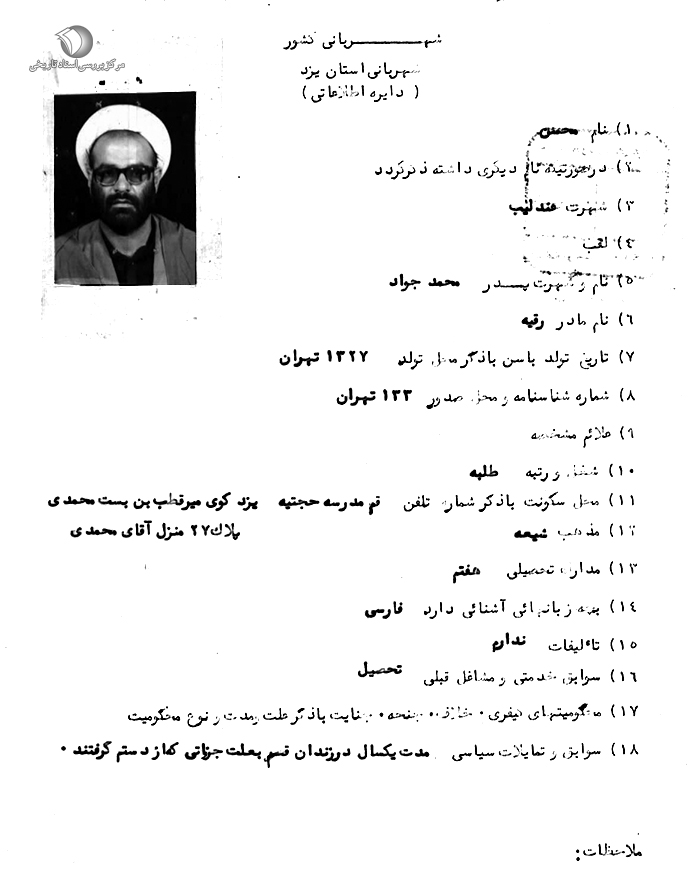 مرکز بررسی اسناد تاریخی
شهربانی کشور
شهربانی استان یزد
( دایره اطلاعاتی )
۱) نام محسن
۲) در صورتیکه نام دیگری داشته ذکر گردد
۳) شهرت عندلیب
۴) لقب
۵) نام و شهرت پدر محمد جواد
۶) نام مادر رقیه
۷) تاریخ تولد یا سن با ذکر محل تولد ۱۳۲۷ تهران
۸) شماره شناسنامه و محل صدور ۱۳۳ تهران
۹) علائم مشخصه
۱۰) شغل و رتبه طلبه
۱۱) محل سکونت با ذکر شماره تلفن قم مدرسه حجتیه یزد کوی میرقطب بن بست محمدی
پلاک ۲۷ منزل آقای محمدی
۱۲) مذهب شیعه
۱۳) مدارک تحصیلی هفتم
۱۴) بچه زبانهائی آشنائی دارد فارسی
۱۵) تألیفات ندارم
۱۶) سوابق خدمتی و مشاغل قبلی تحصیل
۱۷) محکومیتهای کیفری ۰ خلاف ۰ جنحه ۰ جنایت با ذکر علت و مدت و نوع محکومیت
۱۸) سوابق و تمایلات سیاسی مدت یکسال در زندان قسم بعلت جزواتی که از دستم گرفتند ۰
ملاحظات: